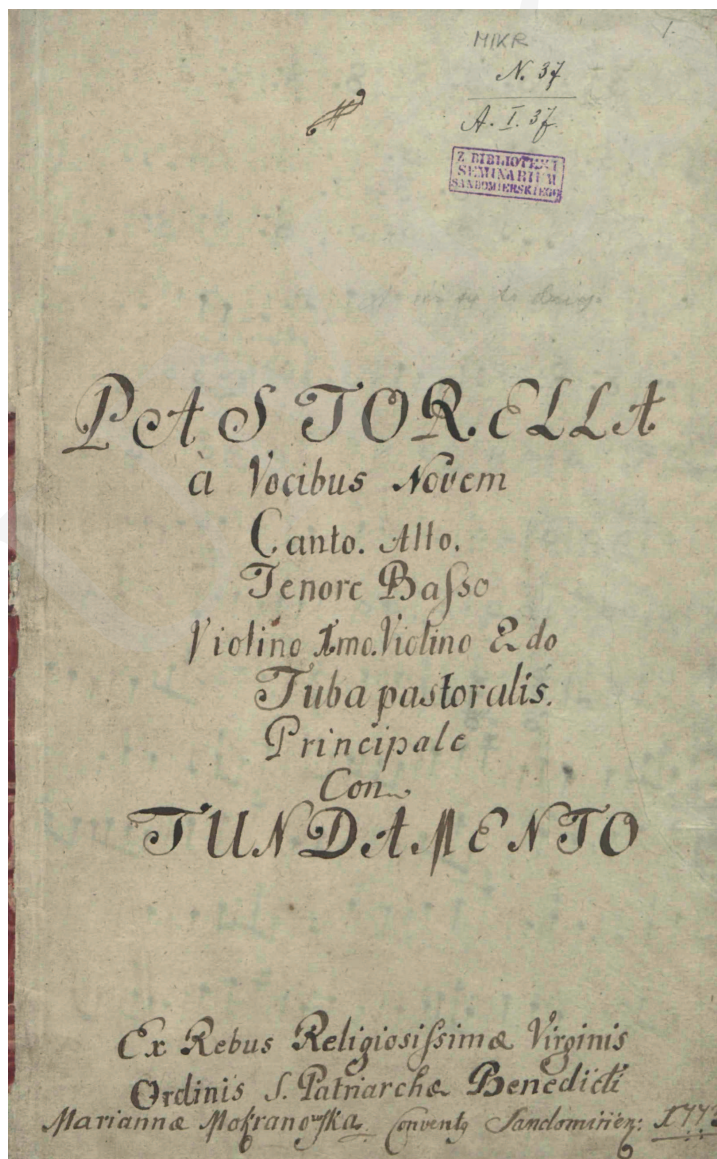 1.
MIKR
N. 37
A. I. 37.
Z BIBLIOTEKI
SEMINARIUM
SANDOMIERSKIEGO
PASTORELLA
à Vocibus Novem
Canto. Alto.
Tenore Baſso
Violino Imo. Violino 2do
Tuba pastoralis.
Principale
Con
FUNDAMENTO
Ex Rebus Religiosiſsimæ Virginis
Ordinis S. Patriarchæ Benedicti
Mariannæ Mokranowſka Conventq Sandomirien: